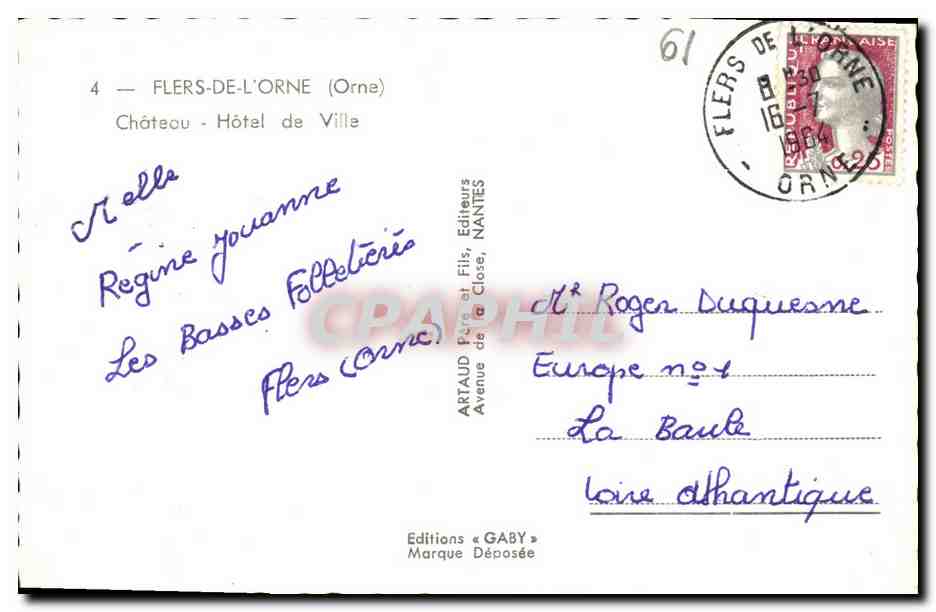 61
FLERS DE L'ORNE
16-7
1964
ORNE
REPUBLIQUE FRANCAISE
POSTES
0,25
4 — FLERS-DE-L'ORNE (Orne)
Château - Hôtel de Ville
Melle
Régine Jouanne
Les Basses Folletières
Flers (Orne)
ARTAUD Père et Fils, Editeurs
Avenue de la Close, NANTES
CPAPHIL
Mr Roger Duquesne
Europe no 1
La Baule
Loire Athantique
Editions « GABY »
Marque Déposée